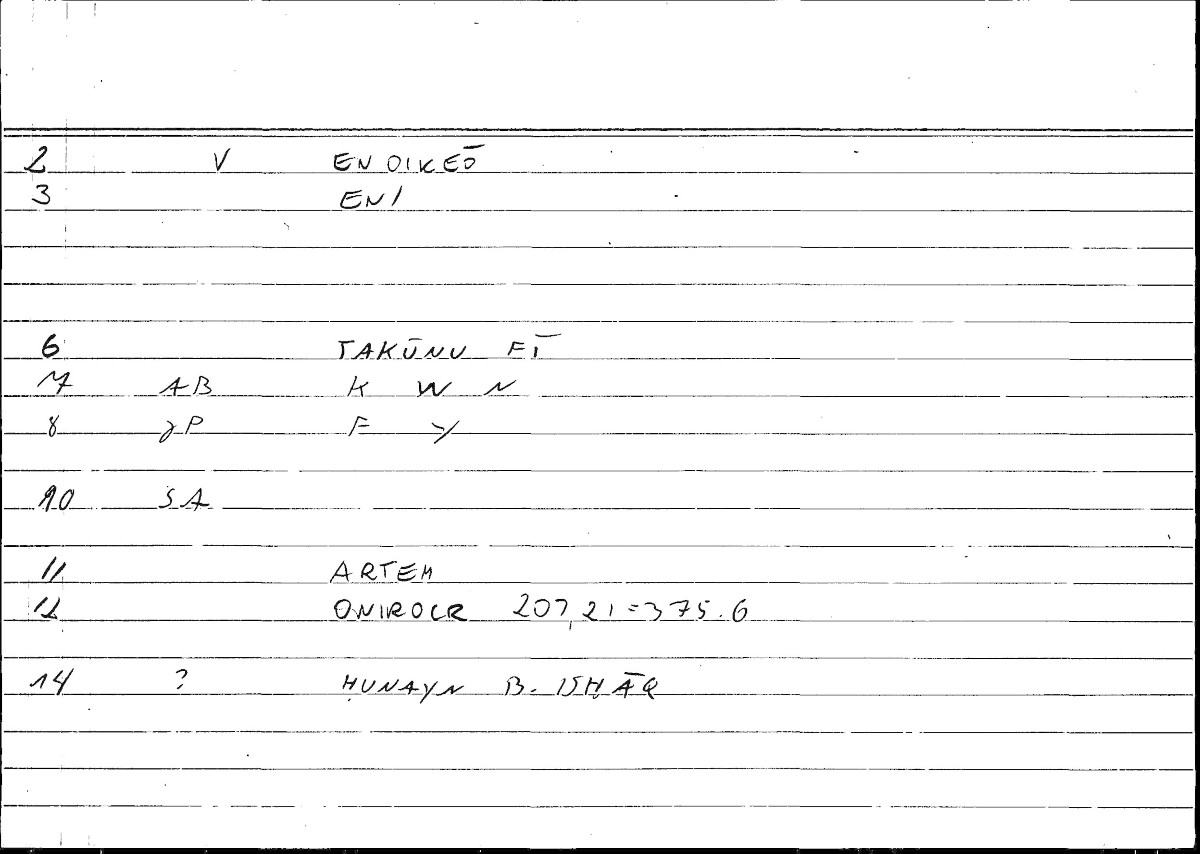 2 V ENOIKEŌ
3 EN/
6 TAKŪNU FĪ
7 AB K W N
8 γP F Y
10 SA
11 ARTEM
12 ONIROCR 207,21=375.6
14 ? ḤUNAYN B. ISḤĀQ